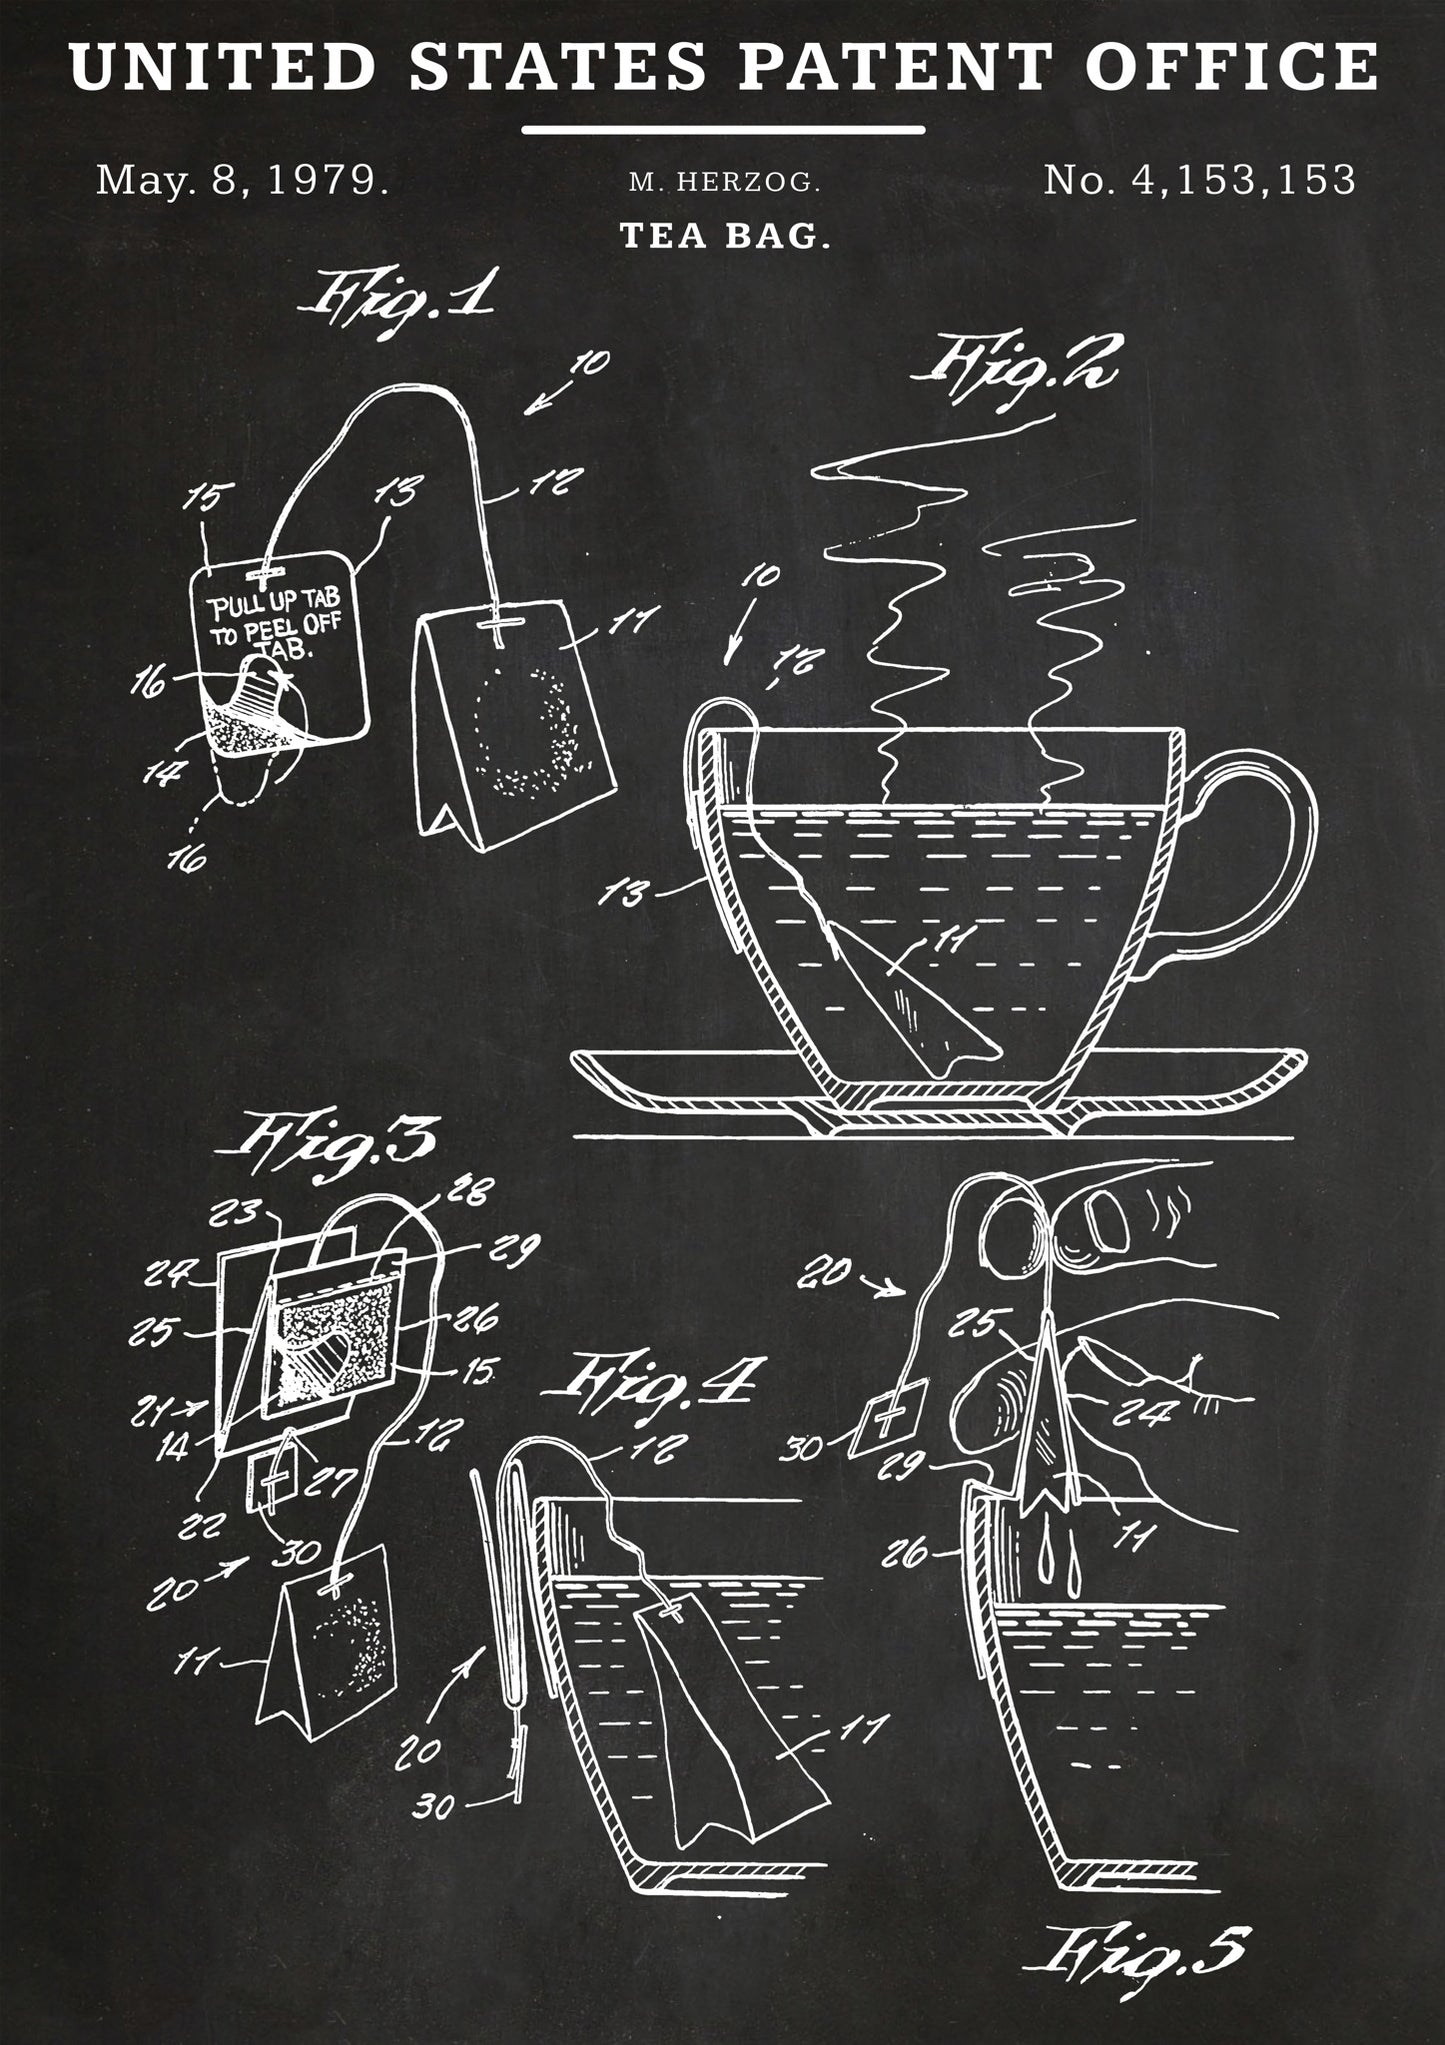 UNITED STATES PATENT OFFICE
May. 8, 1979.
M. HERZOG.
No. 4,153,153
TEA BAG.
Fig.1
10
15
13
12
PULL UP TAB
TO PEEL OFF
TAB.
11
16
14
16
Fig.2
10
12
13
11
Fig.3
28
23
29
24
25
26
15
21
14
12
27
22
30
20
11
Fig.4
12
20
11
30
20
25
24
30
29
11
26
Fig.5